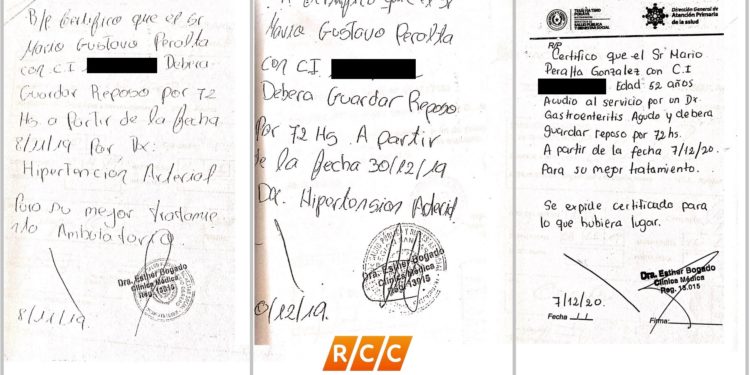 B/p Certifico que el Sr
Mario Gustavo Peralta
con C.I Debera
Guardar Reposo por 72
Hs a Partir de la fecha
8/11/19 Por Dx:
Hipertención Arterial
Para su mejor tratamie
nto Ambulatorio
Dra. Esther Bogado
Clínica Médica
Reg. 13015
8/11/19.
Certifico que el Sr
Mario Gustavo Peralta
con C.I
Debera Guardar Reposo
Por 72 Hs. A partir
de la fecha 30/12/19
Dx. Hipertension Arterial.
Dra. Esther Bogado
Clínica Médica
Reg. 13015
0/12/19.
Dirección General de
Atención Primaria
de la salud
R/P
Certifico que el Sr Mario
Peralta Gonzalez con C.I
Edad 52 años
Acudio al servicio por un Dx.
Gastroenteritis Agudo y debera
guardar reposo por 72hs.
A partir de la fecha 7/12/20.
Para su mejor tratamiento.
Se expide certificado para
lo que hubiera lugar.
Dra. Esther Bogado
Clínica Médica
Reg. 13.015
7/12/20.
Fecha
Firma:
RCC